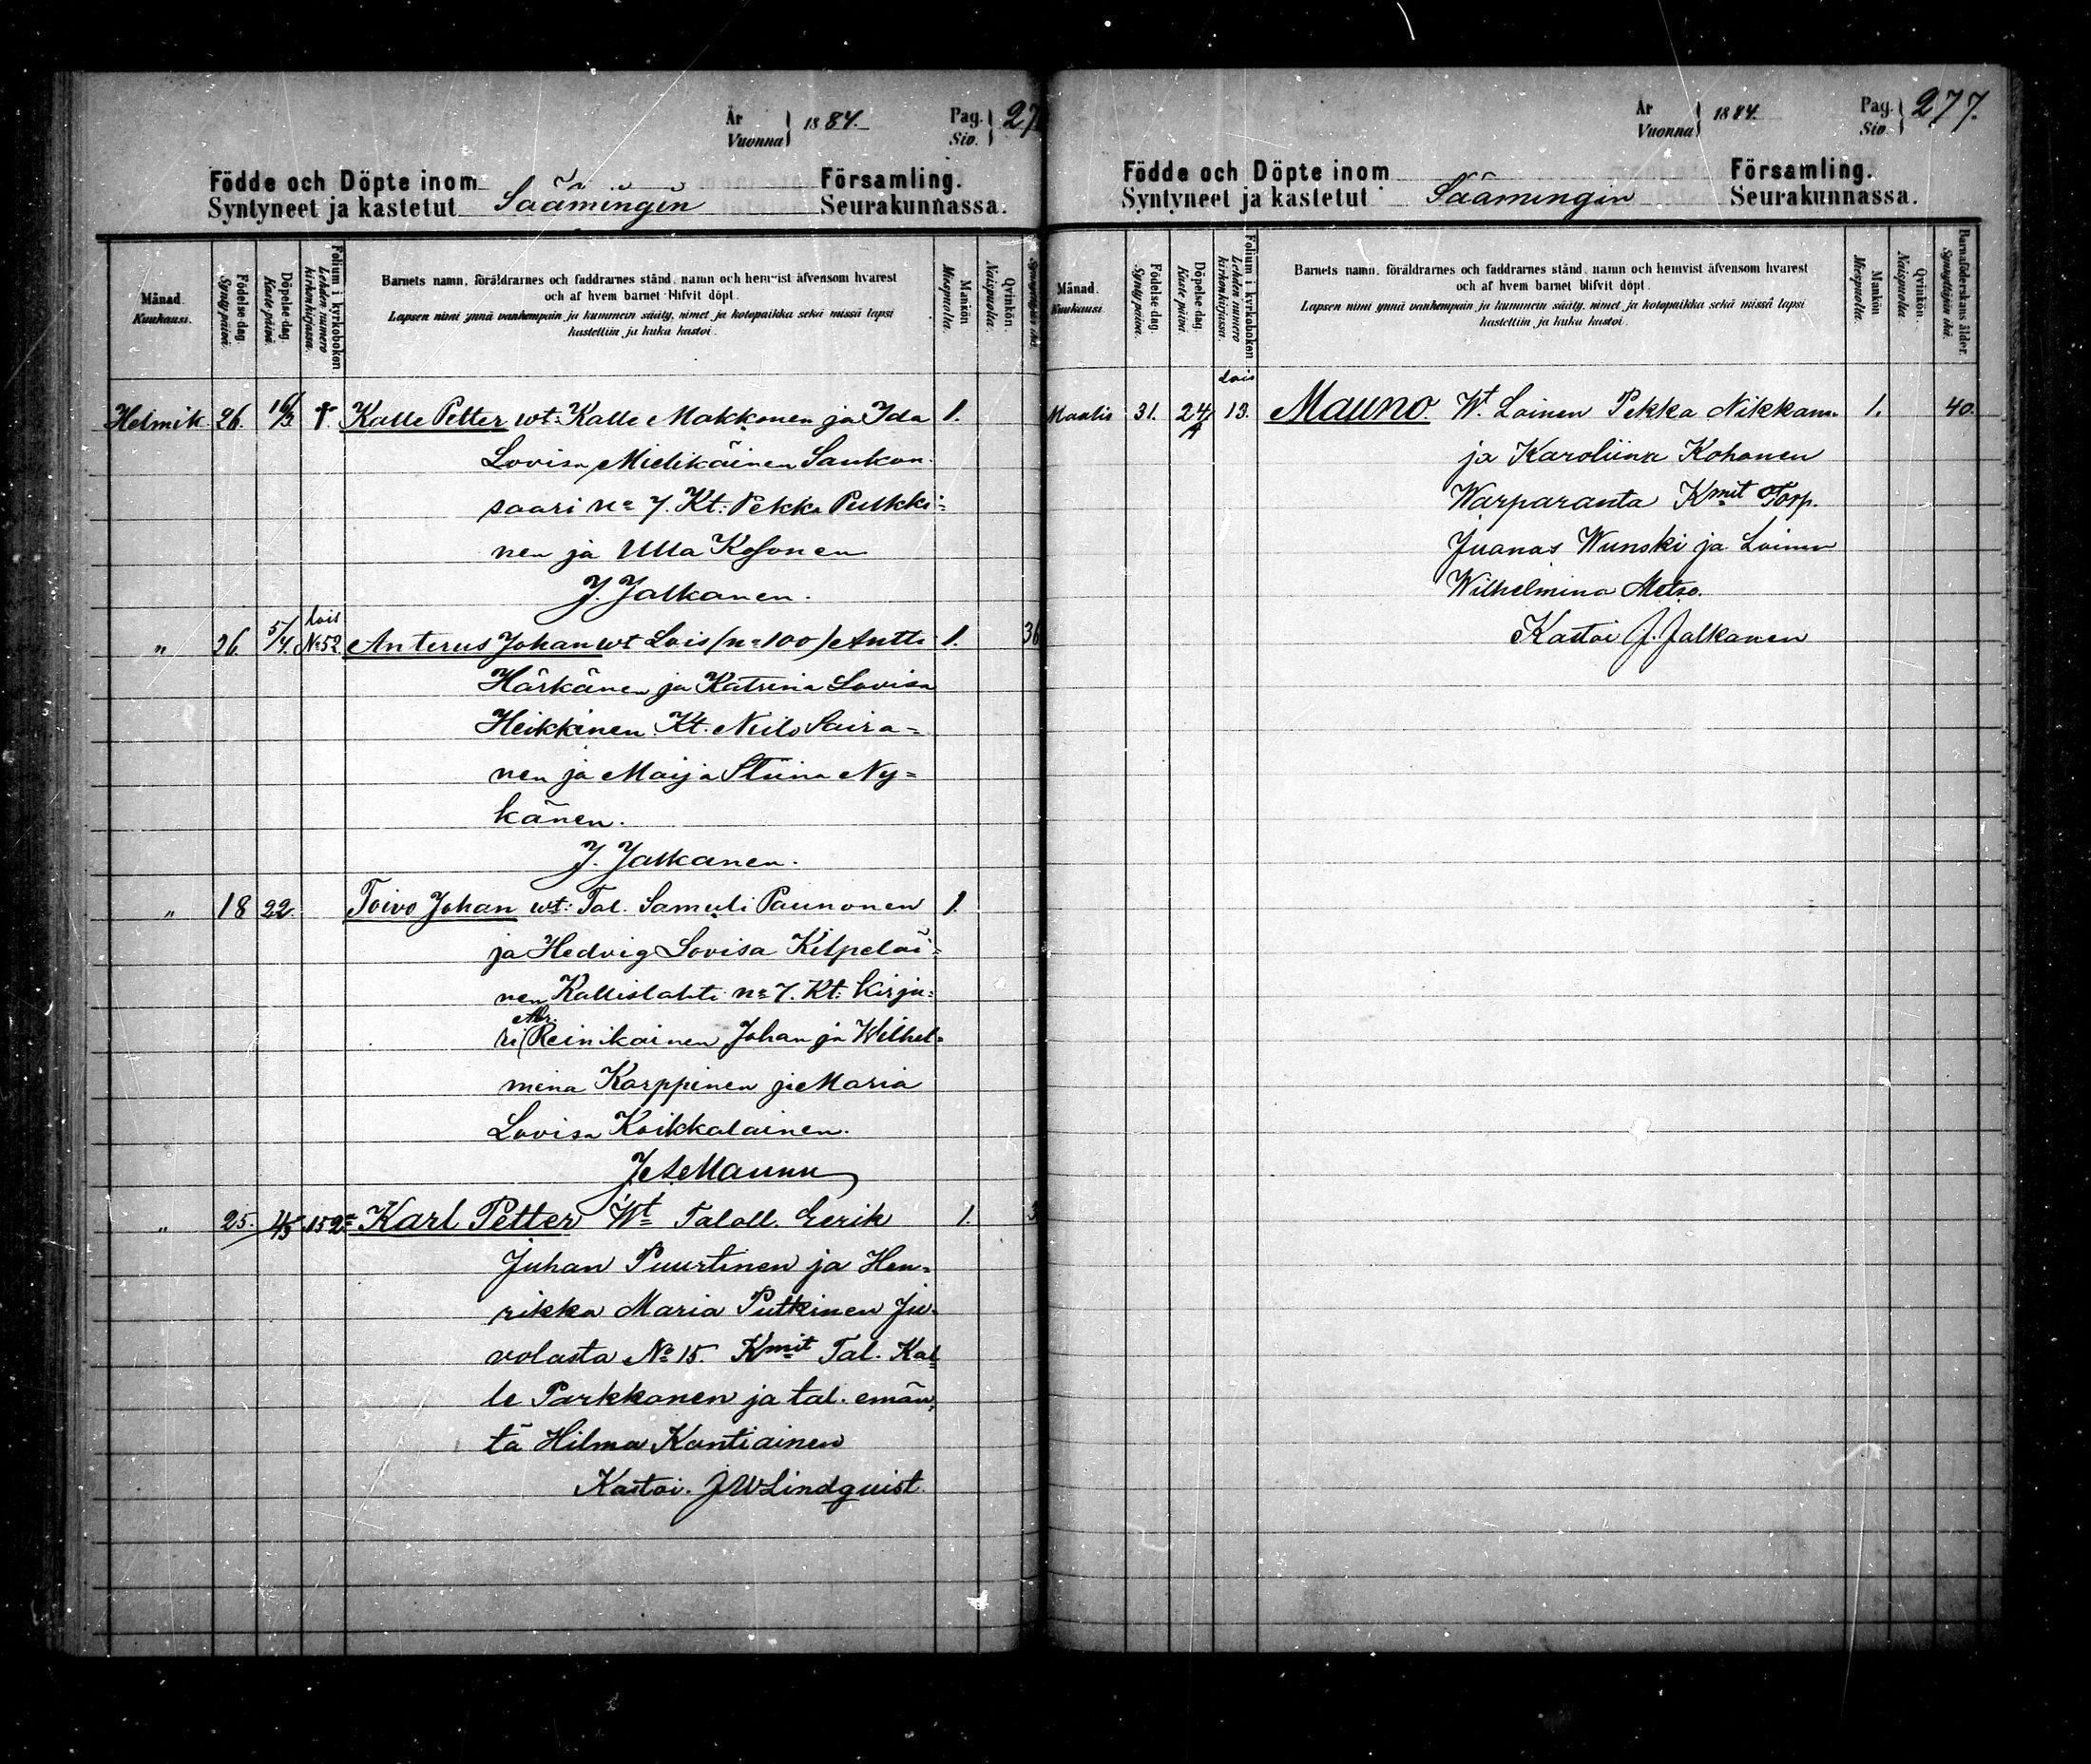 År
Vuonna } 1884.
Pag.
Siv. } 27
Födde och Döpte inom Församling.
Syntyneet ja kastetut Säämingin Seurakunnassa.
Månad. Kuukausi.
Födelse dag. Synty päivä.
Döpelse dag. Kaste päivä.
Folium i kyrkoboken Lehden numero kirkonkirjassa.
Barnets namn, föräldrarnes och faddrarnes stånd, namn och hemvist äfvensom hvarest
och af hvem barnet blifvit döpt.
Lapsen nimi ynnä vanhempain ja kummein sääty, nimet ja kotopaikka sekä missä lapsi
kastettiin ja kuka kastoi.
Mankön Miespuolta.
Qvinkön. Naispuolta.
Helmik. 26. 16/3. † Kalle Petter wt: Kalle Makkonen ja Ida 1.
Lovisa Mielikäinen Saukon
saari no 7. Kt: Pekka Pulkki=
nen ja Ulla Kosonen
J. Jalkanen.
lois
" 26. 5/4. No 52. Anterus Johan wt Lois (no 100) Antti 1. 36
Härkänen ja Katrina Lovisa
Heikkinen Kt. Niilo Saira=
nen ja Maija Stiina Ny=
känen.
J. Jalkanen.
" 18 22. Toivo Johan wt: Tal. Samuli Paunonen 1.
ja Hedvig Lovisa Kilpeläi=
nen Kallislahti no 7. Kt: kirju=
ri Reinikainen Johan ja Wilhel=
mina Karppinen ja Maria
Lovisa Koikkalainen.
" 25. 4/5 152 Karl Petter Wt Taloll. Eerik 1. 3
Juhan Puurtinen ja Hen=
rikka Maria Putkinen Ju=
volasta No 15. Kmit Tal. Kal=
le Parkkonen ja tal. emän=
tä Hilma Kontiainen
Kastoi. J W Lindquist.
År
Vuonna } 1884.
Pag.
Siv. } 277.
Födde och Döpte inom Församling.
Syntyneet ja kastetut Säämingin Seurakunnassa.
Månad. Kuukausi.
Födelse dag. Synty päivä.
Döpelse dag. Kaste päivä.
Folium i kyrkoboken Lehden numero kirkonkirjassa.
Barnets namn, föräldrarnes och faddrarnes stånd, namn och hemvist äfvensom hvarest
och af hvem barnet blifvit döpt.
Lapsen nimi ynnä vanhempain ja kummein sääty, nimet ja kotopaikka sekä missä lapsi
kastettiin ja kuka kastoi.
Mankön Miespuolta.
Qvinkön. Naispuolta.
Barnaföderskans ålder. Synnyttäjän ikä.
lois
Maalis 31. 24/4 13. Mauno Wt. Loinen Pekka Nikkann 1. 40.
ja Karoliina Kohonen
Warparanta Kmit Torp.
Juanas Wunski ja Loinen
Wilhelmina Metso.
Kastoi J. Jalkanen